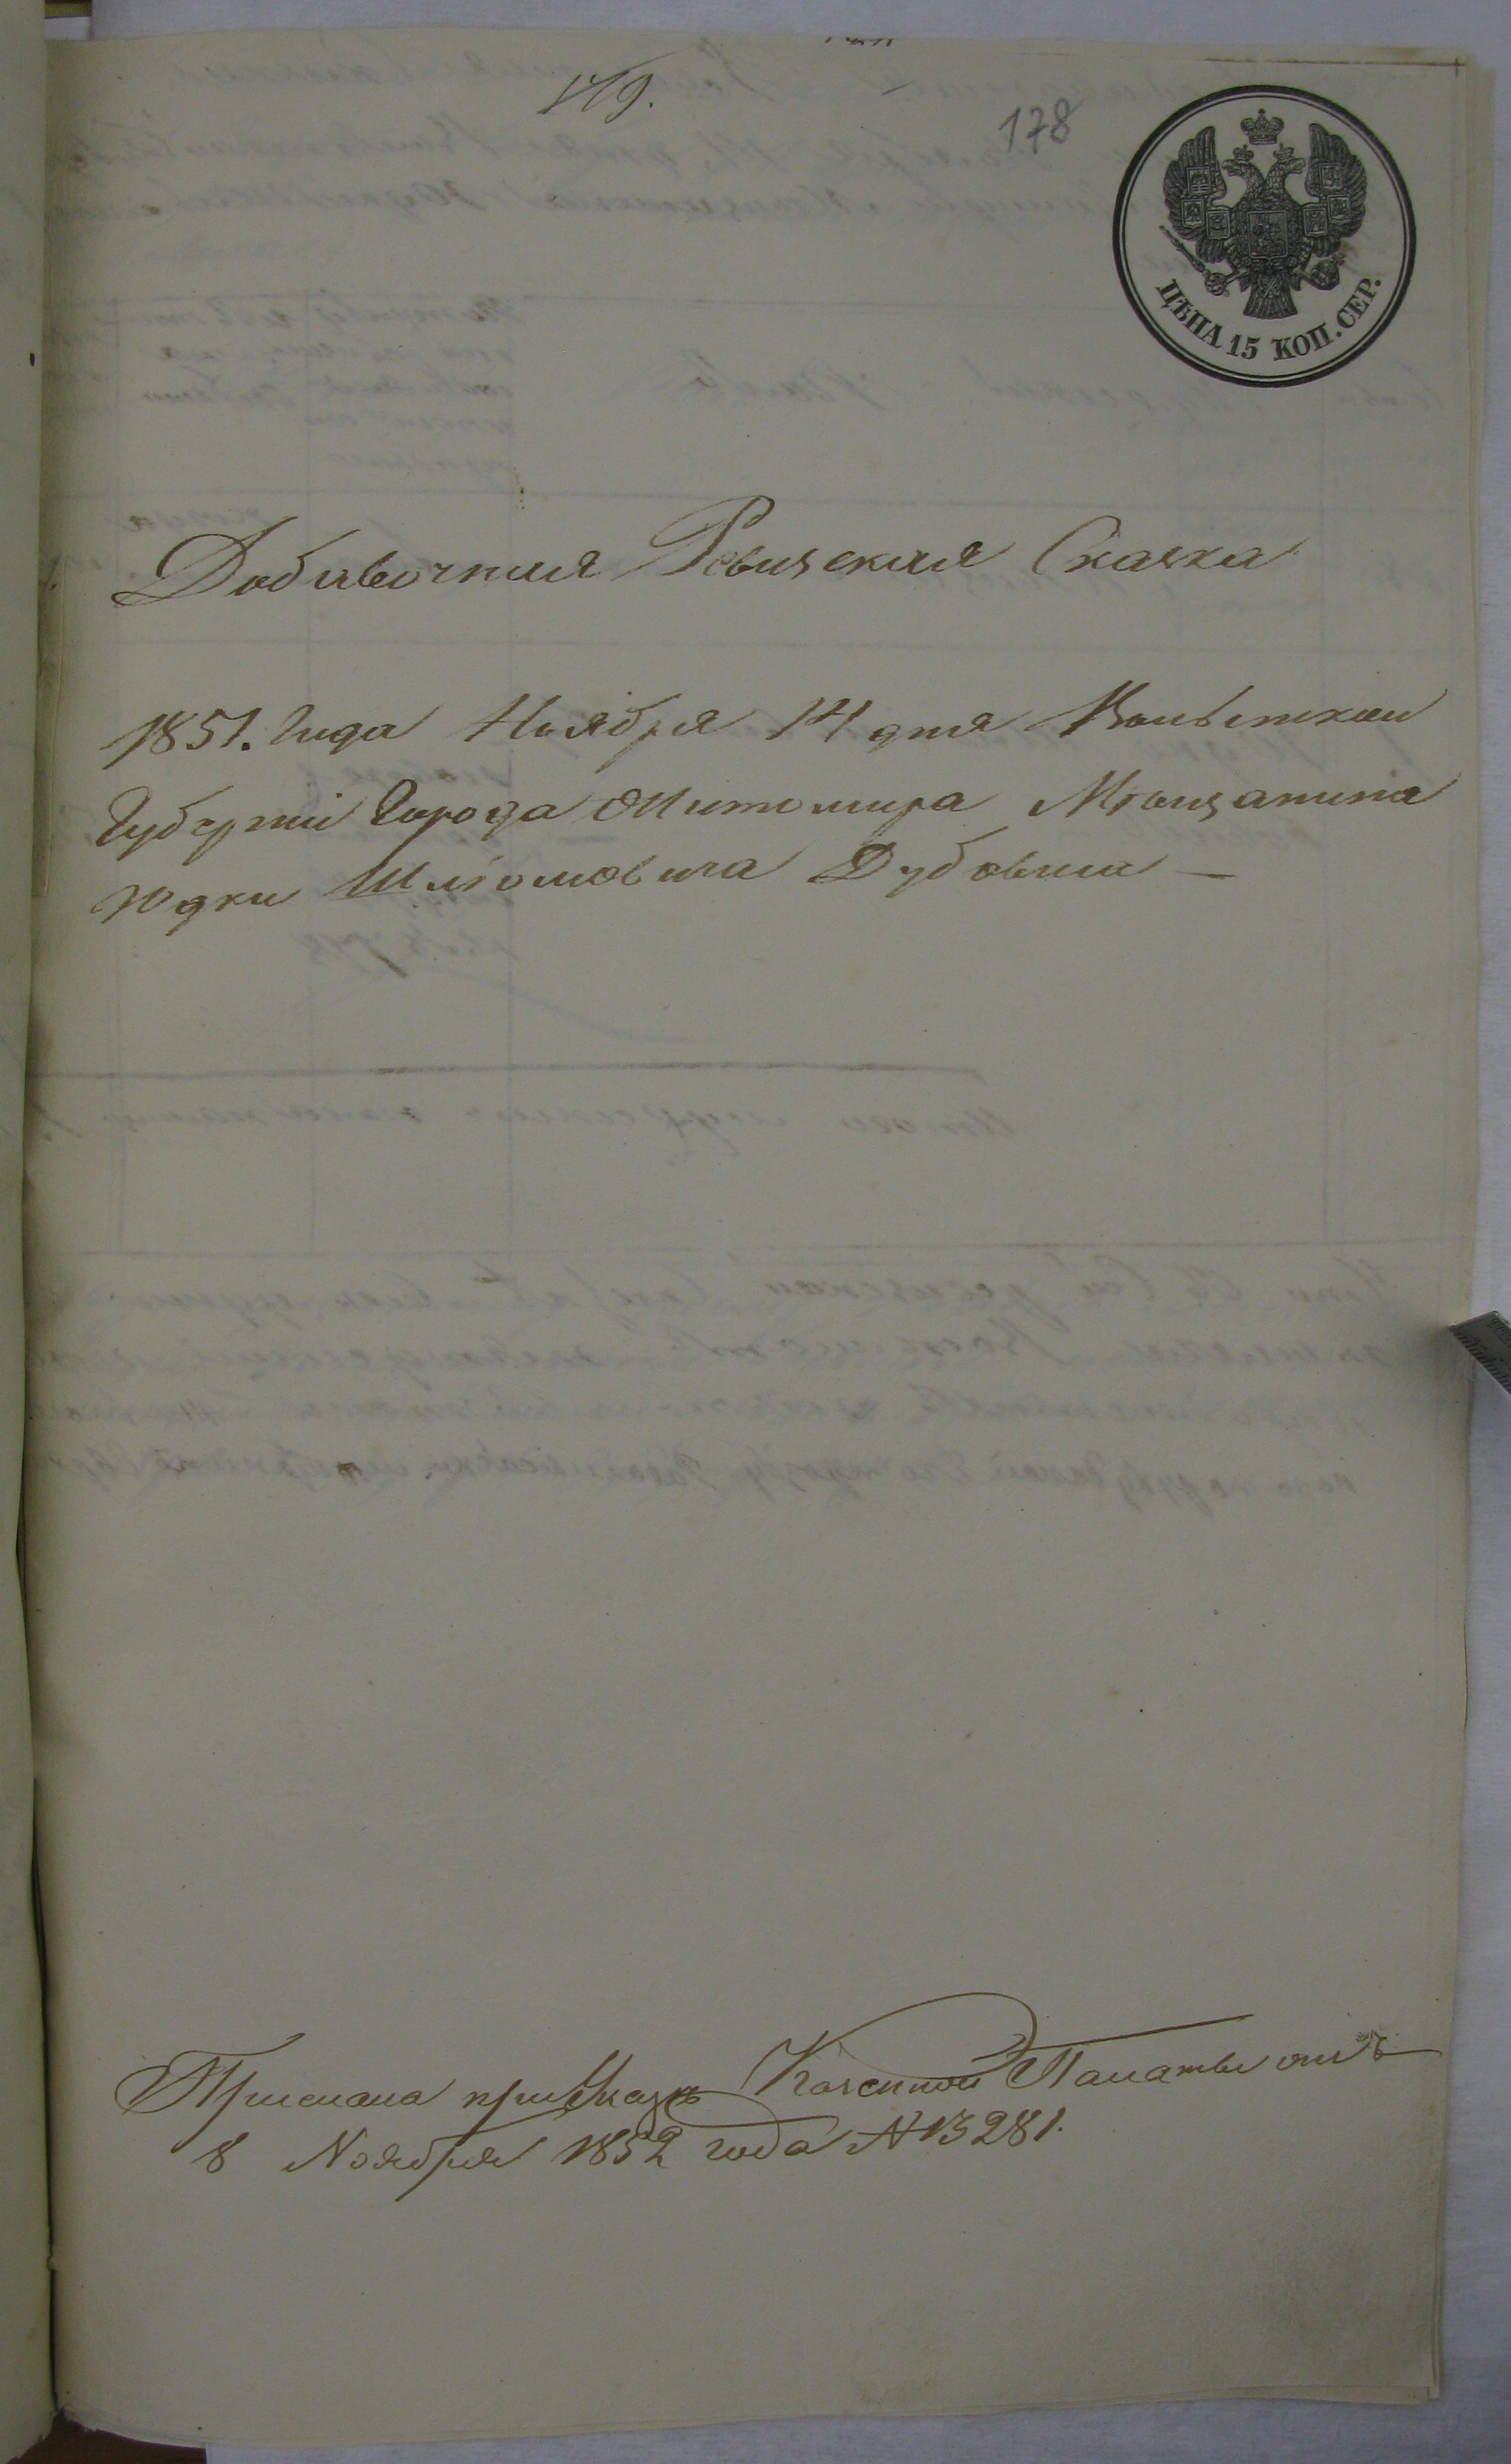 178
ЦѢНА 15 КОП. СЕР.
Добавочная Ревизская Сказка
1851. Года Ноября 14 дня Волынской
Губерніи Города Житомира Мѣщанина
Юдки Шліомовича Дубовича —
Прислана при Указѣ Казенной Палаты отъ
8 Ноября 1852 года №13281.